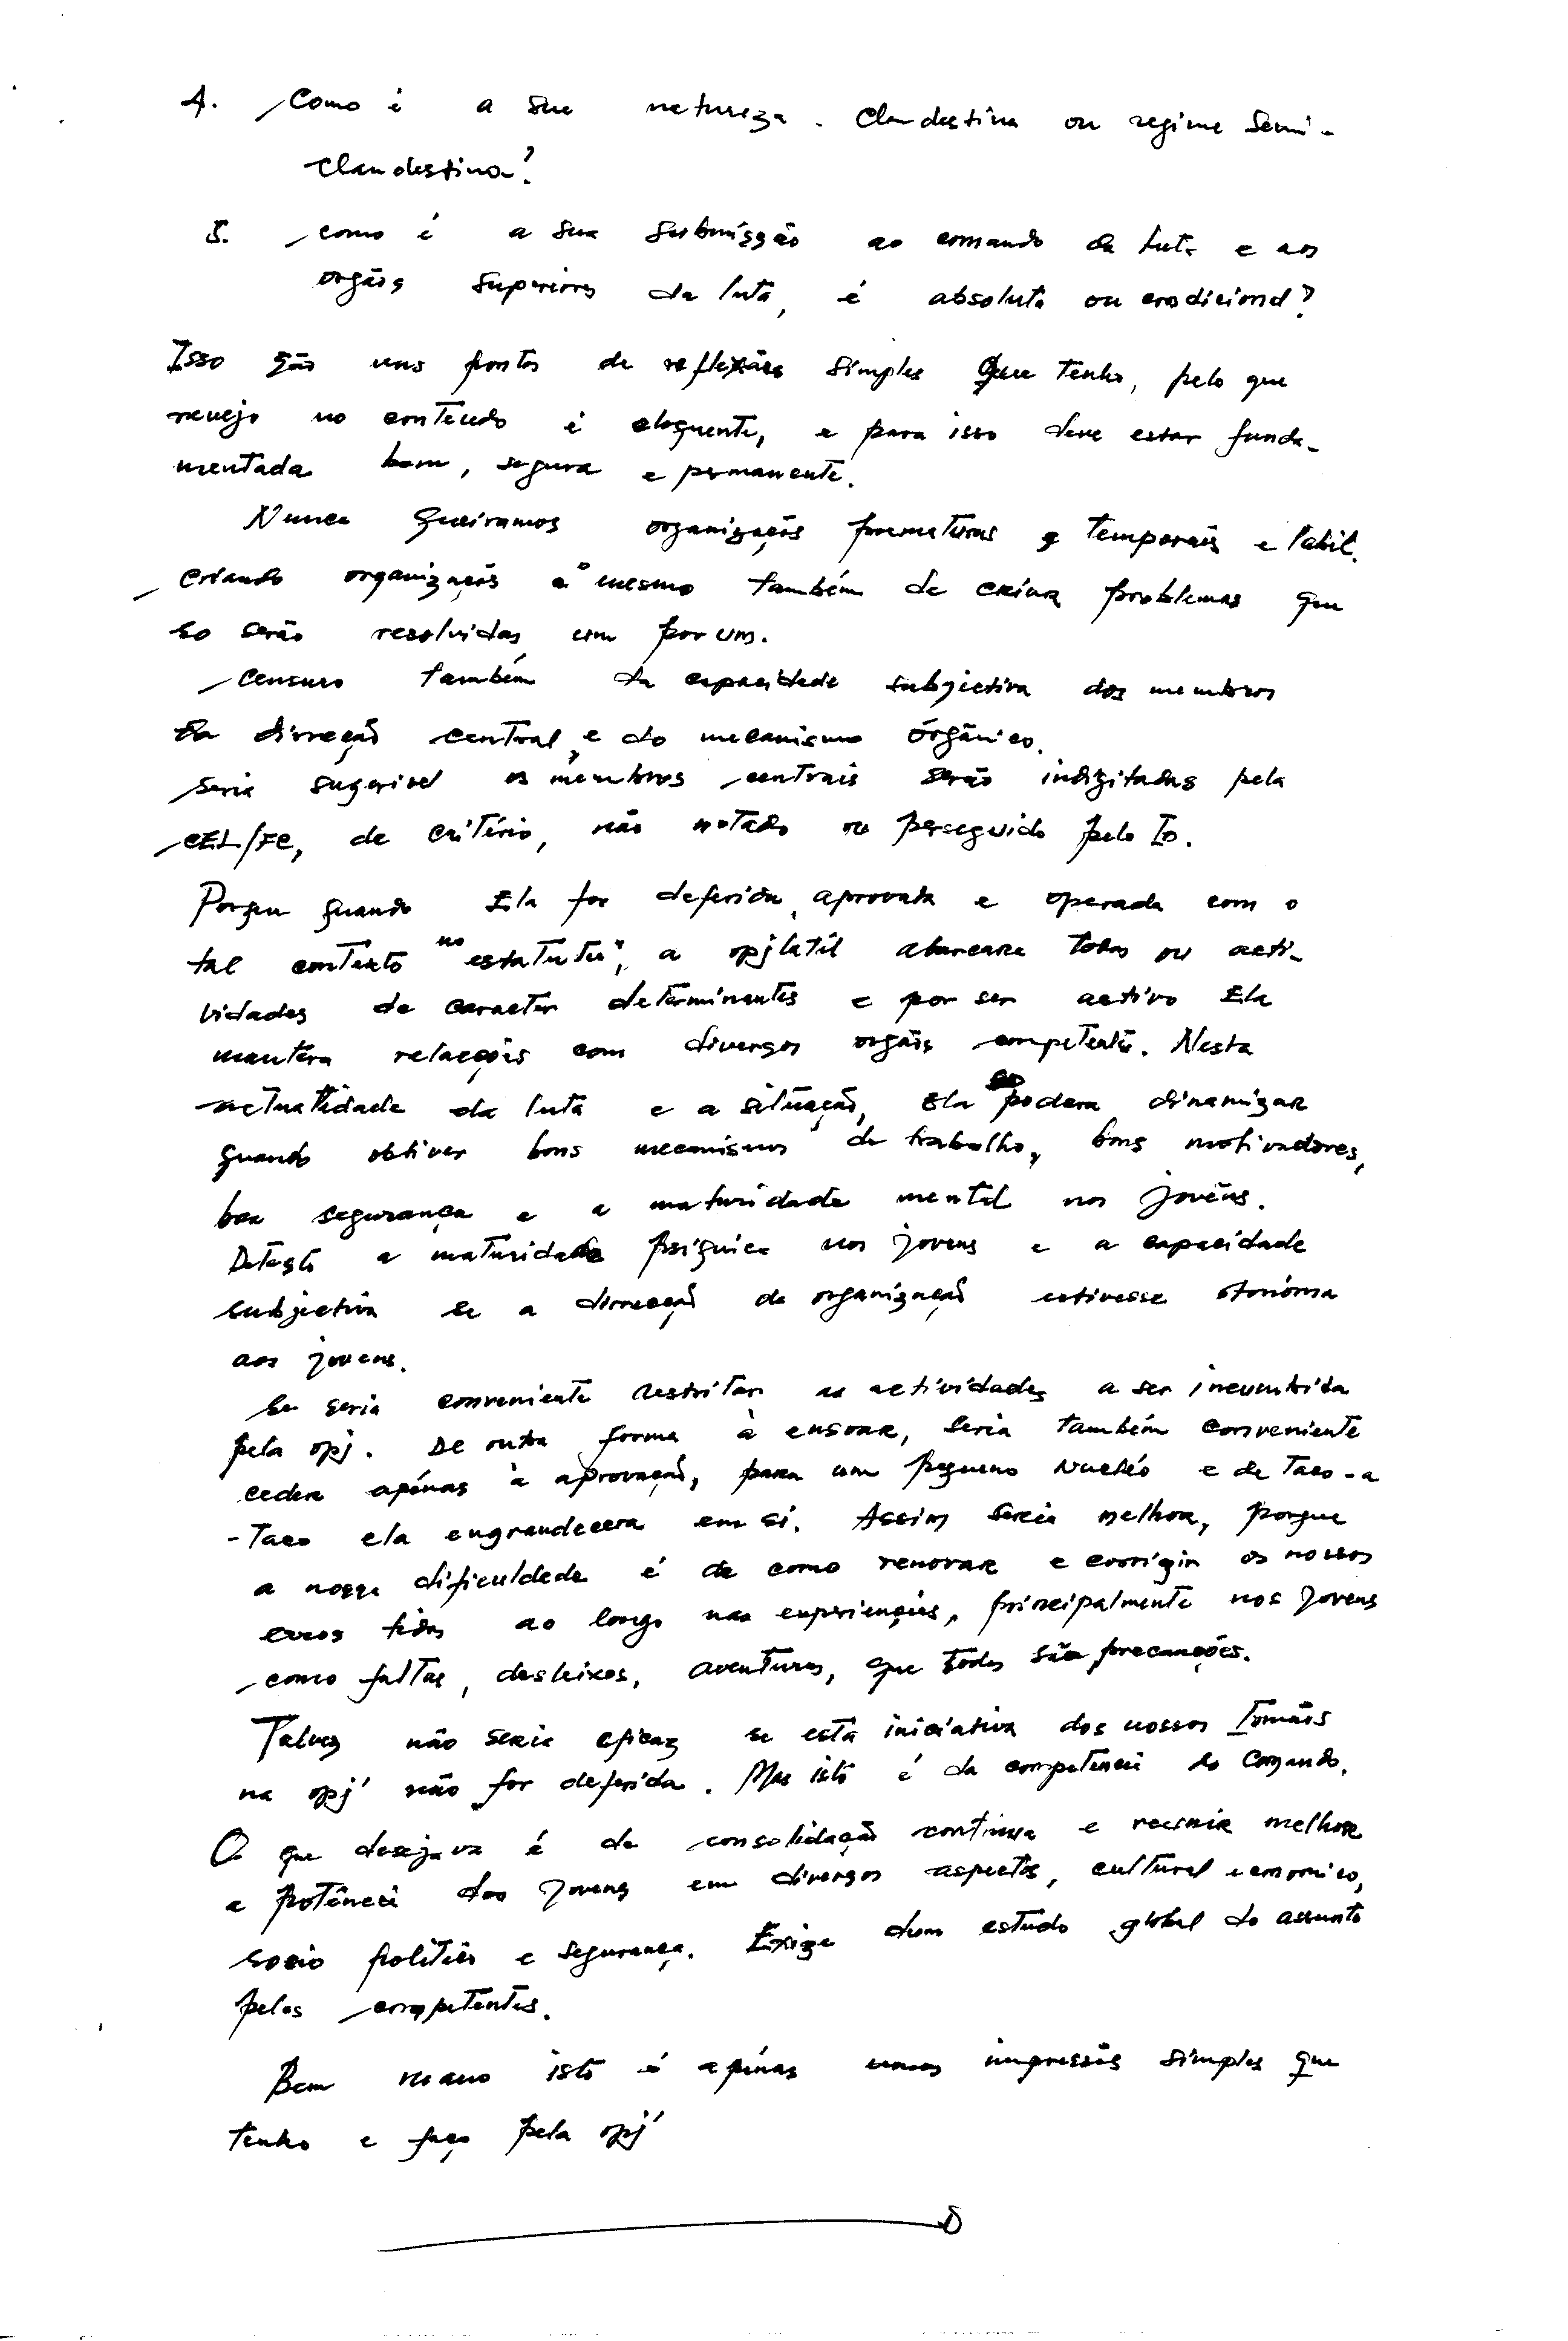 4. Como é a sua natureza. Clandestina ou regime Semi-
Clandestina?
5. como é a sua submissão ao comando da luta e aos
orgãis superiores da luta, é absoluta ou condicional?
Isso são uns pontos de reflexões simples Que tenho, pelo que
revejo no conteúdo é eloquente, e para isso deve estar funda-
mentada bem, segura e permanente.
Nunca queiramos organizaçõs prematuras e temporais e labil.
Criando organizaçõs é o mesmo também de criar problemas que
so serão resolvidas um por um.
Censuro também da capacidade subjectiva dos membros
da direcção central, e do mecanismo órgânico.
seria sugerivel os membros centrais serão indigitadas pela
CEL/FC, de critério, não notado ou perseguido pelo Io.
Porque quando Ela for deferida, aprovada e operada com o
tal contexto no "estatutu", a opjlatil abarcara todos ou acti-
vidades de caracter determinentes e por ser activo Ela
mantera relacções com diversos orgãis competentes. Nesta
actualidade da luta e a situação, Ela podera dinamizar
quando obtiver bons mecanismos de trabalho, bons motivadores,
boa segurança e a maturidade mental nos jovéns.
Detesto a maturidade psiquica nos jovens e a capacidade
subjectiva se a direcção da organização estivesse otonóma
aos jovens.
Se seria conveniente restritar as actividades a ser incumbida
pela opj. De outra forma à ensoar, seria também conveniente
ceder apénas à aprovação, para um pequeno nucléo e de Taco-a
-Taco ela engrandecera em si. Assim seria melhor, porque
a nossa dificuldade é de como renovar e corrigir os nossos
erros tidos ao longo nas experienções, principalmente nos jovens
como faltas, desleixos, aventuras, que todos são precauções.
Talvez não seria eficaz se esta iniciativa dos nossos Irmãis
na opj' não for deferida. Mas isto é da competência do Comando.
O que desejava é da consolidação continua e reunir melhor
a potência dos jovens em diversos aspectos, cultural economico,
socio politico e segurança. Exige dum estudo global do assunto
pelos competentes.
Bem mano isto é apénas umas impressõs simples que
tenho e faço pela opj'